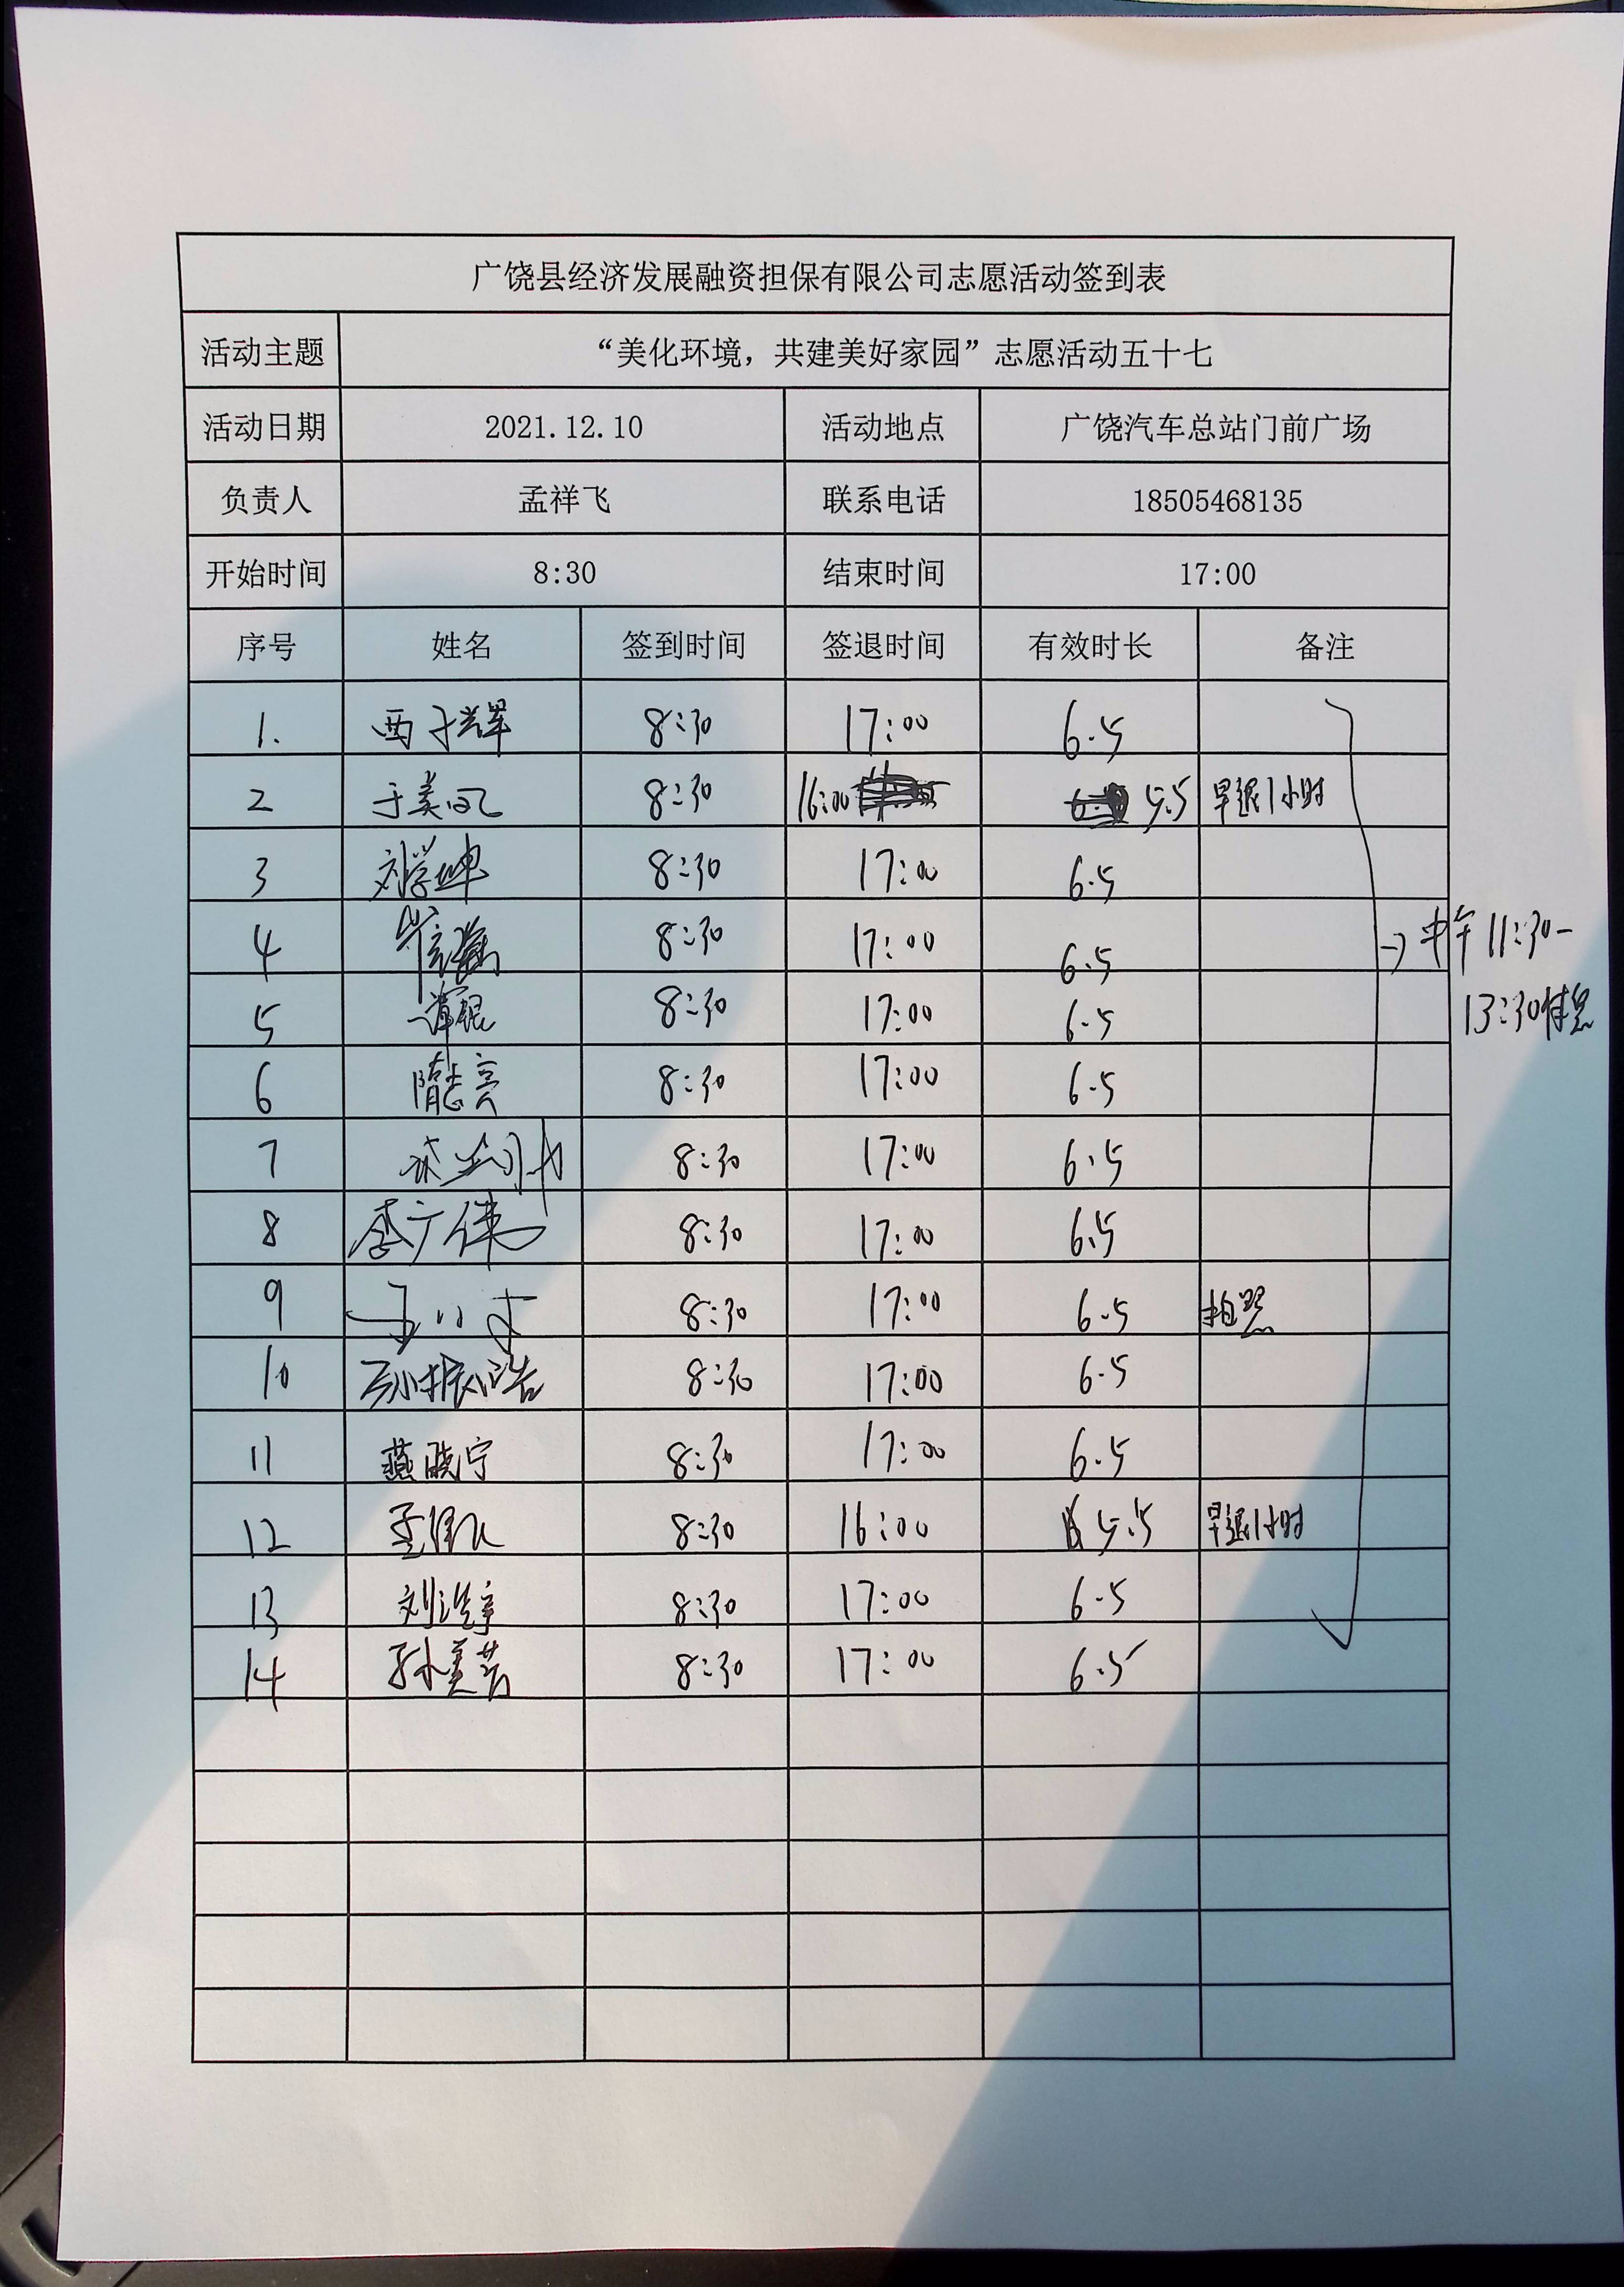 广饶县经济发展融资担保有限公司志愿活动签到表
活动主题 “美化环境，共建美好家园”志愿活动五十七
活动日期 2021.12.10 活动地点 广饶汽车总站门前广场
负责人 孟祥飞 联系电话 18505468135
开始时间 8:30 结束时间 17:00
序号 姓名 签到时间 签退时间 有效时长 备注
1. 西子辉 8:30 17:00 6.5
2 于美凤 8:30 16:00 5.5 早退1小时
3 刘学坤 8:30 17:00 6.5
4 8:30 17:00 6.5
→中午11:30-
13:30休息
5 8:30 17:00 6.5
6 隋志亮 8:30 17:00 6.5
7 8:30 17:00 6.5
8 李广伟 8:30 17:00 6.5
9 8:30 17:00 6.5 拍照
10 孙振浩 8:30 17:00 6.5
11 燕晓宁 8:30 17:00 6.5
12 8:30 16:00 5.5 早退1小时
13 刘 8:30 17:00 6.5
14 孙美芳 8:30 17:00 6.5